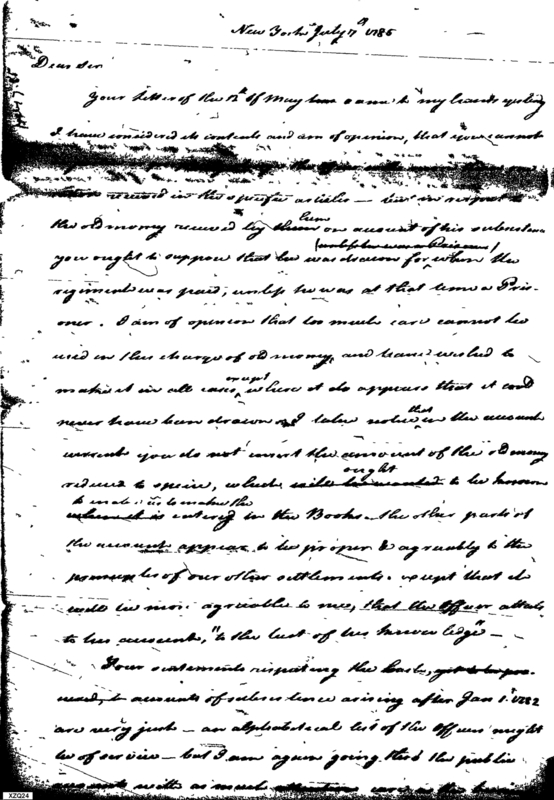 New York July 7th 1785
Dear Sir
Your Letter of the 12th of May came to my hands
I have considered its contents and am of opinion, that you cannot
received in the specific articles — but in respect to
the old money received by him on account of his subsistence
you ought to suppose that he was drawn for when the
(unless he was a Prisoner)
regiment was paid, unless he was at that time a Pris-
oner. I am of opinion that too much care cannot be
used in this charge of old money, and have wished to
make it in all cases, except where it do appears that it could
never have been drawn. I take notice that in the account
current you do not insert the amount of the old money
reduced to specie, which ought to be known
to enable us to make the
when it is entered in the Books. the other parts of
the account appear to be proper & agreeably to the
principles of our other settlements. except that it
will be more agreeable to me, that the Officer attests
to his account, "to the best of his knowledge" —
Your statements respecting the
accounts of subsistence arising after Jan 1st 1782
are very just — an alphabetical list of the Officers might
be of service — but I am again going thro' the public
accounts with as much
XZQ24